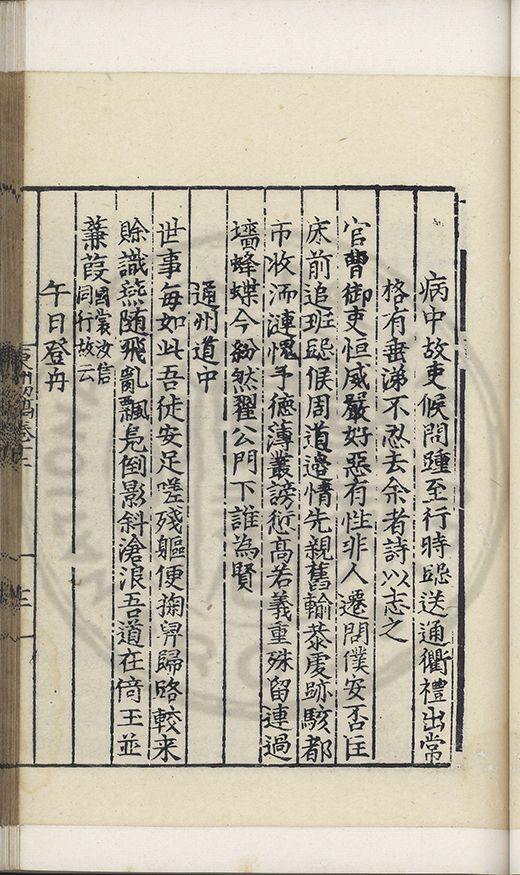 病中故吏候問踵至行時跽送通衢禮出常
格有垂涕不忍去余者詩以志之
官曹御吏恒威嚴好惡有性非人遷問僕安否匡
床前追班跽候周道邉情先親舊輸恭䖍跡駭都
市收沛漣愧予德薄叢謗衍髙若義重殊留連過
墻蜂蝶今紛然翟公門下誰為賢
通州道中
世事每如此吾徒安足嗟殘軀便掬舁歸路較来
賖識燕随飛亂飄鳬倒影斜滄浪吾道在倚玉並
蒹葭國裳汝信
同行故云
午日登舟